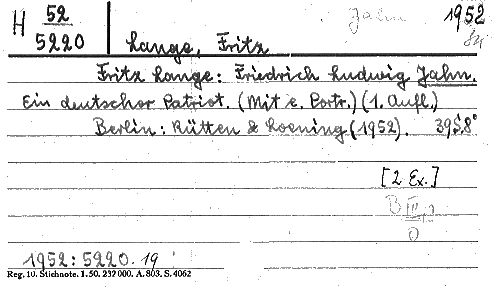 H 52 Jahn 1952
5220 Lange, Fritz
Fritz Lange: Friedrich Ludwig Jahn.
Ein deutscher Patriot. (Mit e. Portr.) (1. Aufl.)
Berlin: Rütten & Loening (1952). 39 S. 8°
[2 Ex.]
B III, 2
0
1952: 5220.19
Reg. 10. Stichnote. 1. 50. 232 000. A. 803. S. 4062